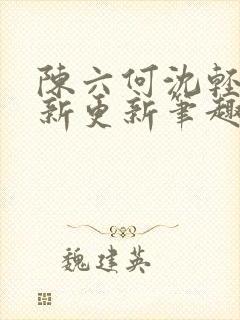 陳六何沈輕
新更新筆趣
魏建英